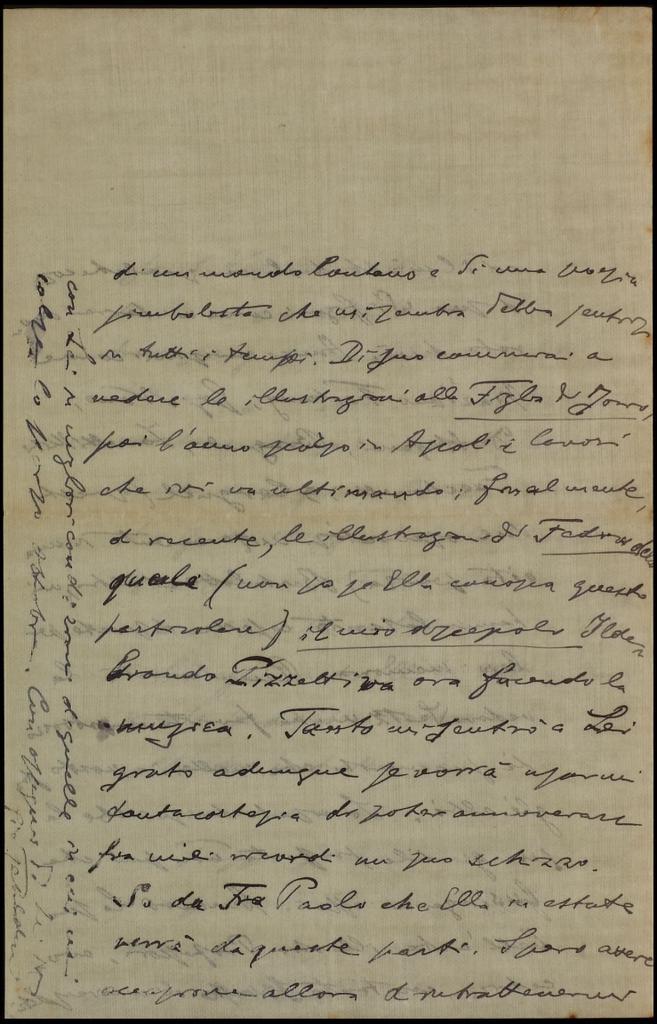 di un mondo lontano e di una poesia
simbolista che mi sembra debba sentirsi
in tutti i tempi. Di suo cominciai a
vedere le illustrazioni alla Figlia di Jorio,
poi l'anno scorso in Ascoli i lavori
che ivi va ultimando; finalmente,
di recente, le illustrazioni di Fedra della
quale (non so se Ella conosca questo
particolare) il mio discepolo Ilde-
brando Pizzetti va ora facendo la
musica. Tanto mi sentirò a Lei
grato adunque se vorrà usarmi
tanta cortesia di poter annoverare
fra miei ricordi un suo schizzo.
So da Fra Paolo che Ella in estate
verrà da queste parti. Spero avere
occasione allora d'intrattenermi
con Lei in migliori condizioni di quelle in cui mi
colse lo scorso ottobre. Con ossequi di Lei